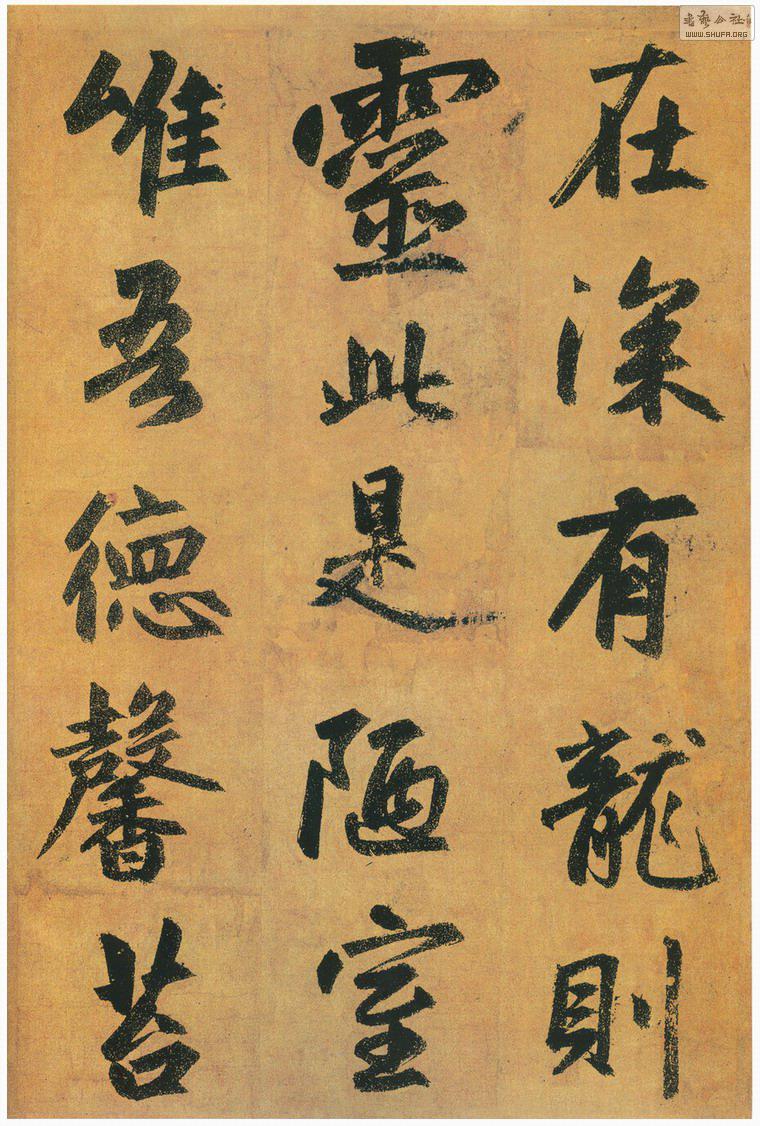 在深有龍則
靈此是陋室
唯吾德馨苔
書藝公社
WWW.SHUFA.ORG